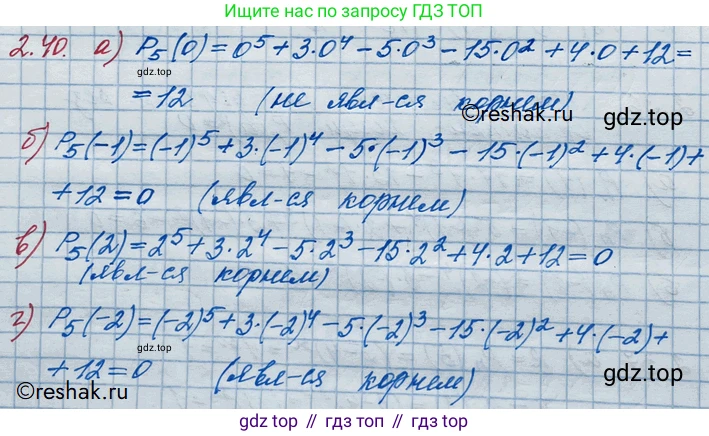 Ищите ответы по запросу ГДЗ ТОП
2.40. а) P₅(0)=0⁵+3·0⁴-5·0³-15·0²+4·0+12=
gdz.top
=12 (не явл-ся корнем)
©reshak.ru gdz.top
б) P₅(-1)=(-1)⁵+3·(-1)⁴-5·(-1)³-15·(-1)²+4·(-1)+
+12=0 (явл-ся корнем)
в) P₅(2)=2⁵+3·2⁴-5·2³-15·2²+4·2+12=0
(явл-ся корнем)
г) P₅(-2)=(-2)⁵+3·(-2)⁴-5·(-2)³-15·(-2)²+4·(-2)+
gdz.top
+12=0 (явл-ся корнем)
©reshak.ru gdz.top
gdz top // гдз топ // gdz.top